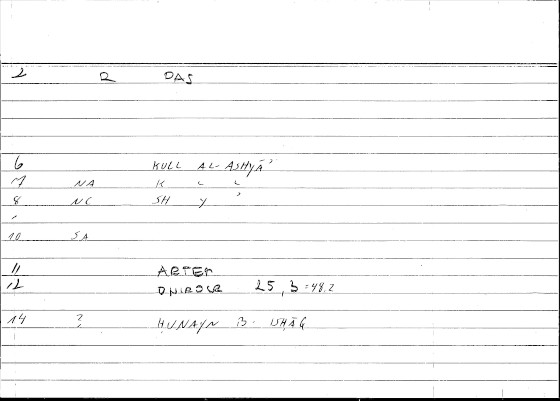 2 Q DAS
6 KULL AL-ASHYĀʾ
7 NA K L L
8 NC SH Y ʾ
10 SA
11 ARTEM
12 25, 3 = 48.2
14 ? HUNAYN B. ISHĀQ